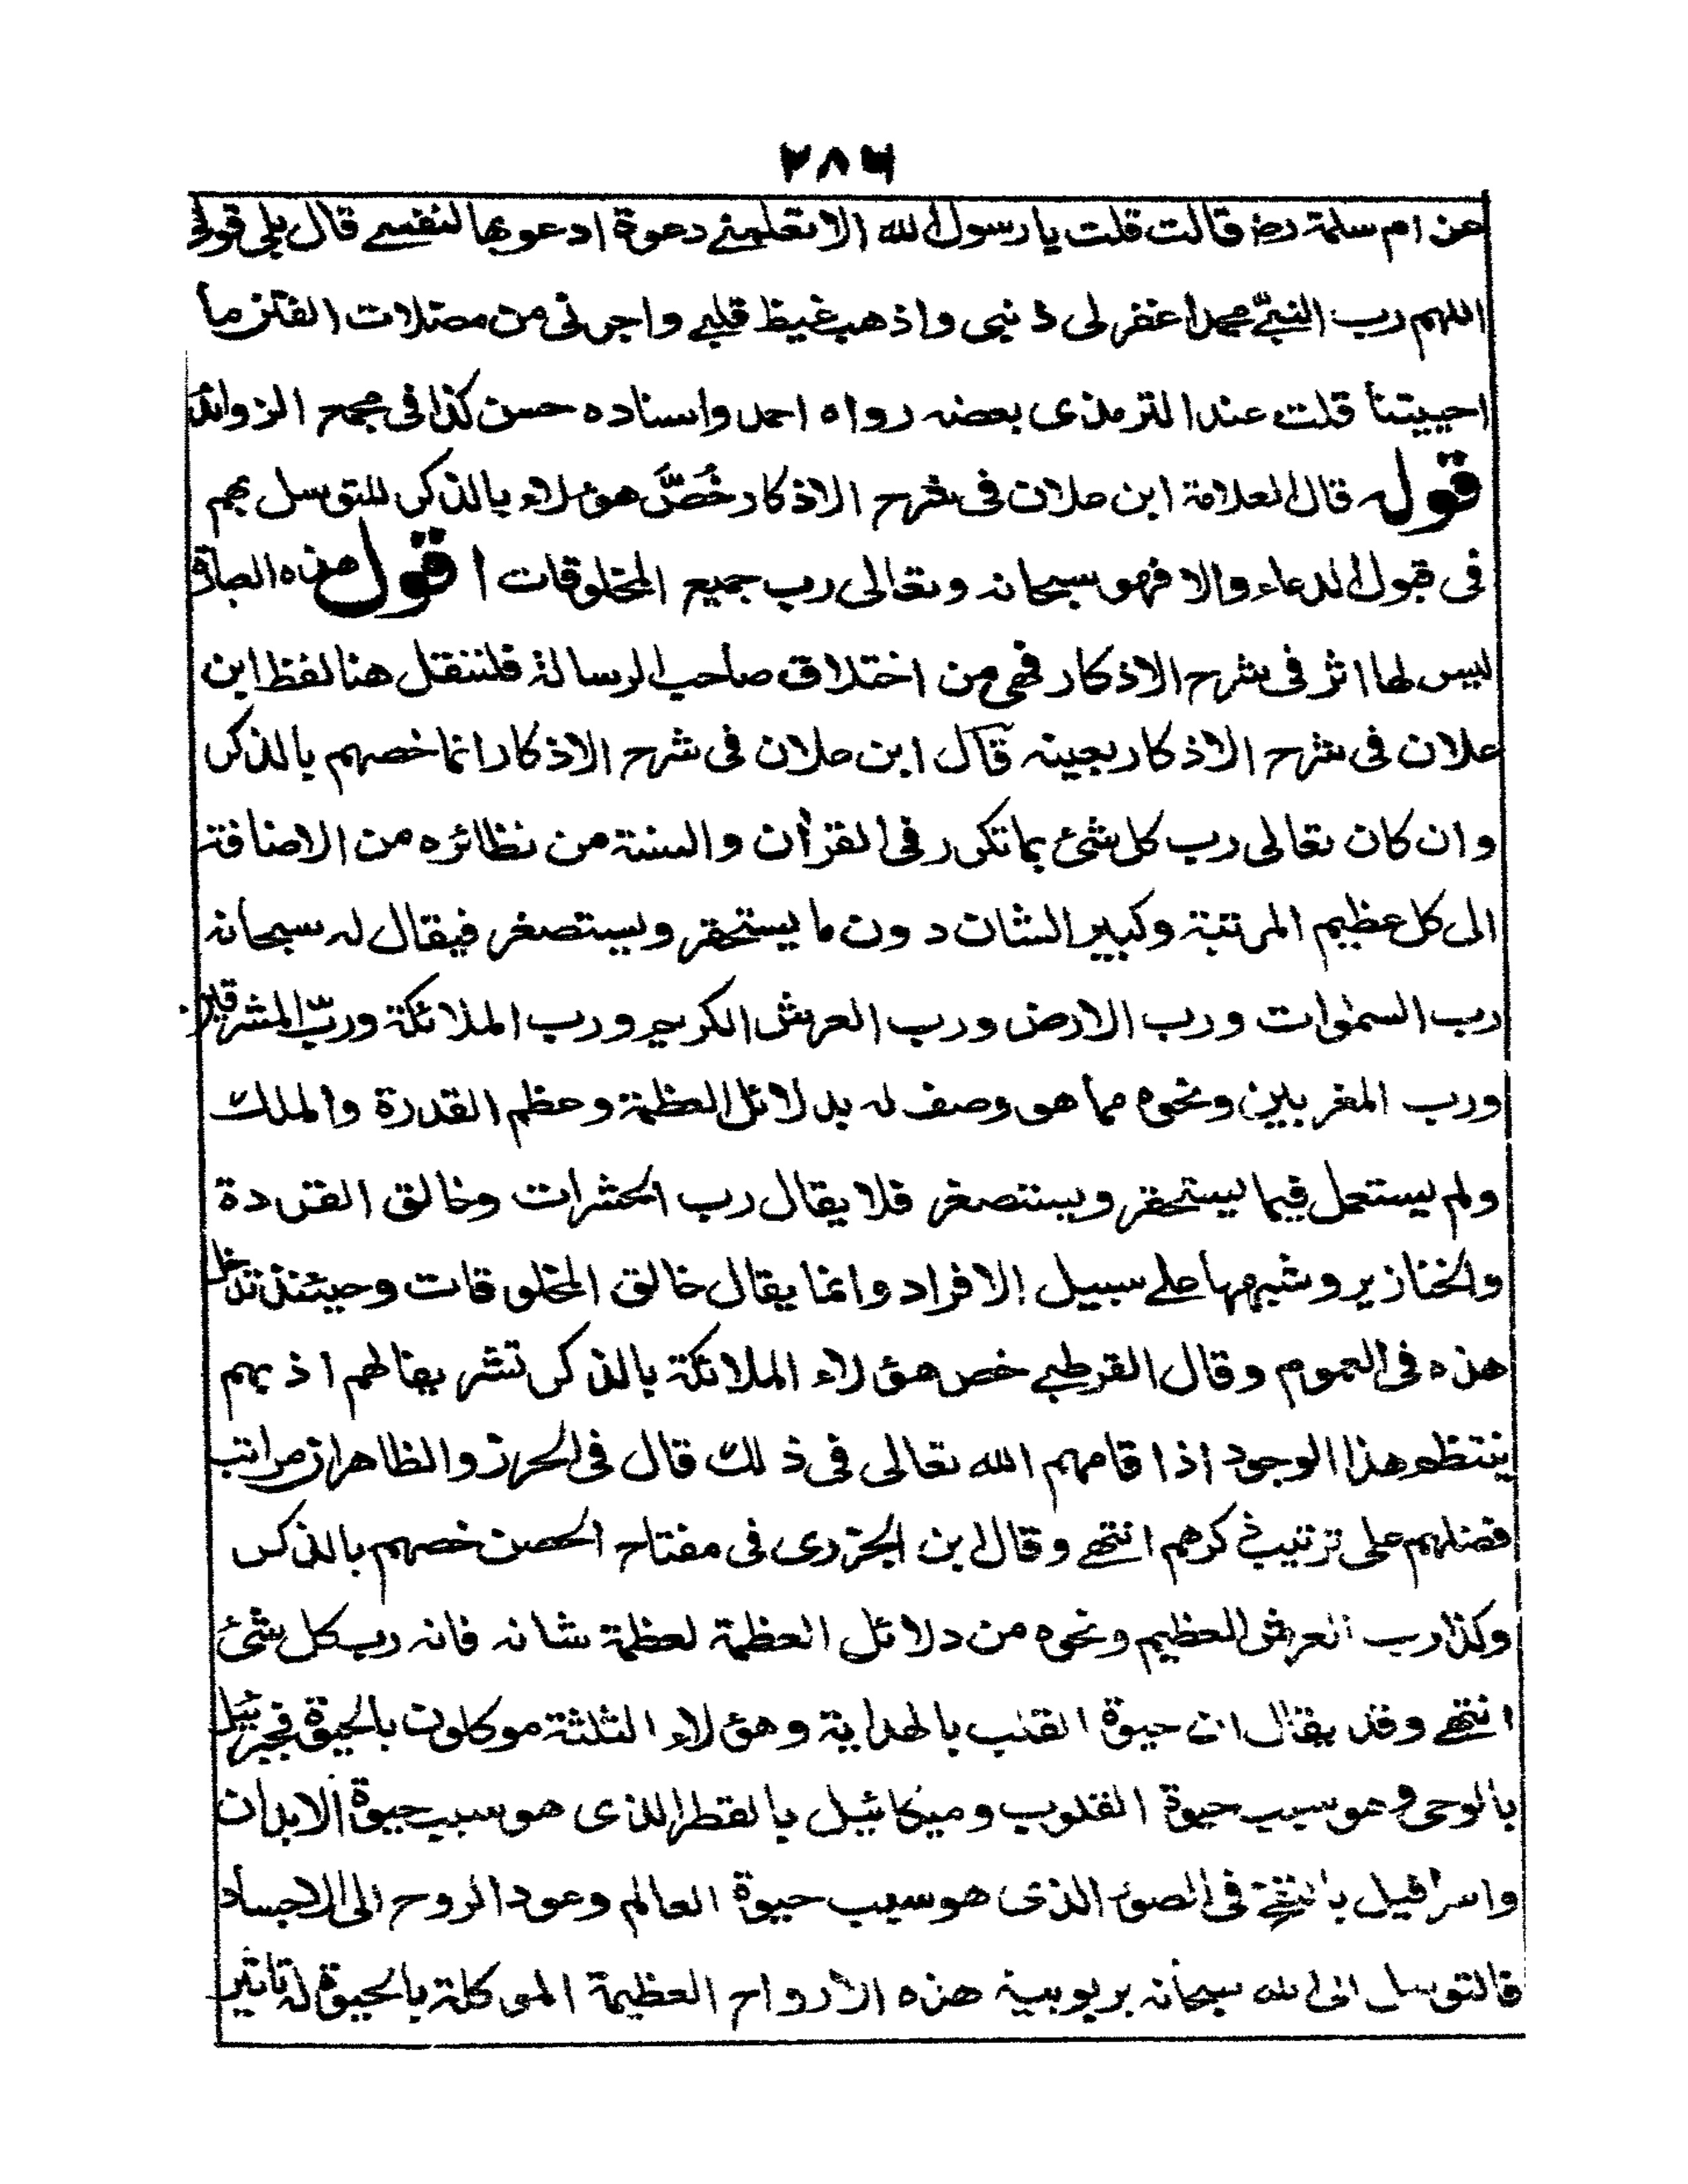 ٢٨٦
عن ام سلمة رض قالت قلت يا رسول الله الا تعلمنى دعوة ادعو بها لنفسى قال بلى قولى
اللهم رب النبى محمد اغفر لى ذنبى واذهب غيظ قلبى واجرنى من مضلات الفتن ما
احييتنا قلت عند الترمذى بعضه رواه احمد واسناده حسن كذا فى مجمع الزوائد
قوله قال العلامة ابن علان فى شرح الاذكار خُصَّ هؤلاء بالذكر للتوسل بهم
فى قبول الدعاء والا فهو سبحانه وتعالى رب جميع المخلوقات اقول هذه العبارة
ليس لها اثر فى شرح الاذكار فهى من اختلاق صاحب الرسالة فلننقل هنا لفظ ابن
علان فى شرح الاذكار بعينه قال ابن علان فى شرح الاذكار انما خصهم بالذكر
وان كان تعالى رب كل شئ بما تكرر فى القرأن والسنة من نظائره من الاضافة
الى كل عظيم المرتبة وكبير الشان دون ما يستحقر ويستصغر فيقال له سبحانه
رب السموات ورب الارض ورب العرش الكريم ورب الملائكة وربّ المشرقين
ورب المغربين ونحوه مما هو وصف له بدلائل العظمة وعظم القدرة والملك
ولم يستعمل فيما يستحقر ويستصغر فلا يقال رب الحشرات وخالق القردة
والخنازير وشبهها على سبيل الافراد وانما يقال خالق المخلوقات وحينئذ تدخل
هذه فى العموم وقال القرطبى خص هؤلاء الملائكة بالذكر تشريفا لهم اذ بهم
ينتظم هذا الوجود اذ اقامهم الله تعالى فى ذلك قال فى الحرز والظاهر ان مراتب
فضلهم على ترتيب ذكرهم انتهى وقال ابن الجزرى فى مفتاح الحصن خصهم بالذكر
وكذا رب العرش العظيم ونحوه من دلائل العظمة لعظمة شانه فانه رب كل شئ
انتهى وقد يقال ان حيوة القلب بالهداية وهؤلاء الثلثة موكلون بالحيوة فجبرئيل
بالوحى وهو سبب حيوة القلوب وميكائيل بالقطر الذى هو سبب حيوة الابدان
واسرافيل بالنفخ فى الصور الذى هو سبب حيوة العالم وعود الروح الى الاجساد
فالتوسل الى الله سبحانه بربوبية هذه الارواح العظيمة الموكلة بالحيوة له تاثير